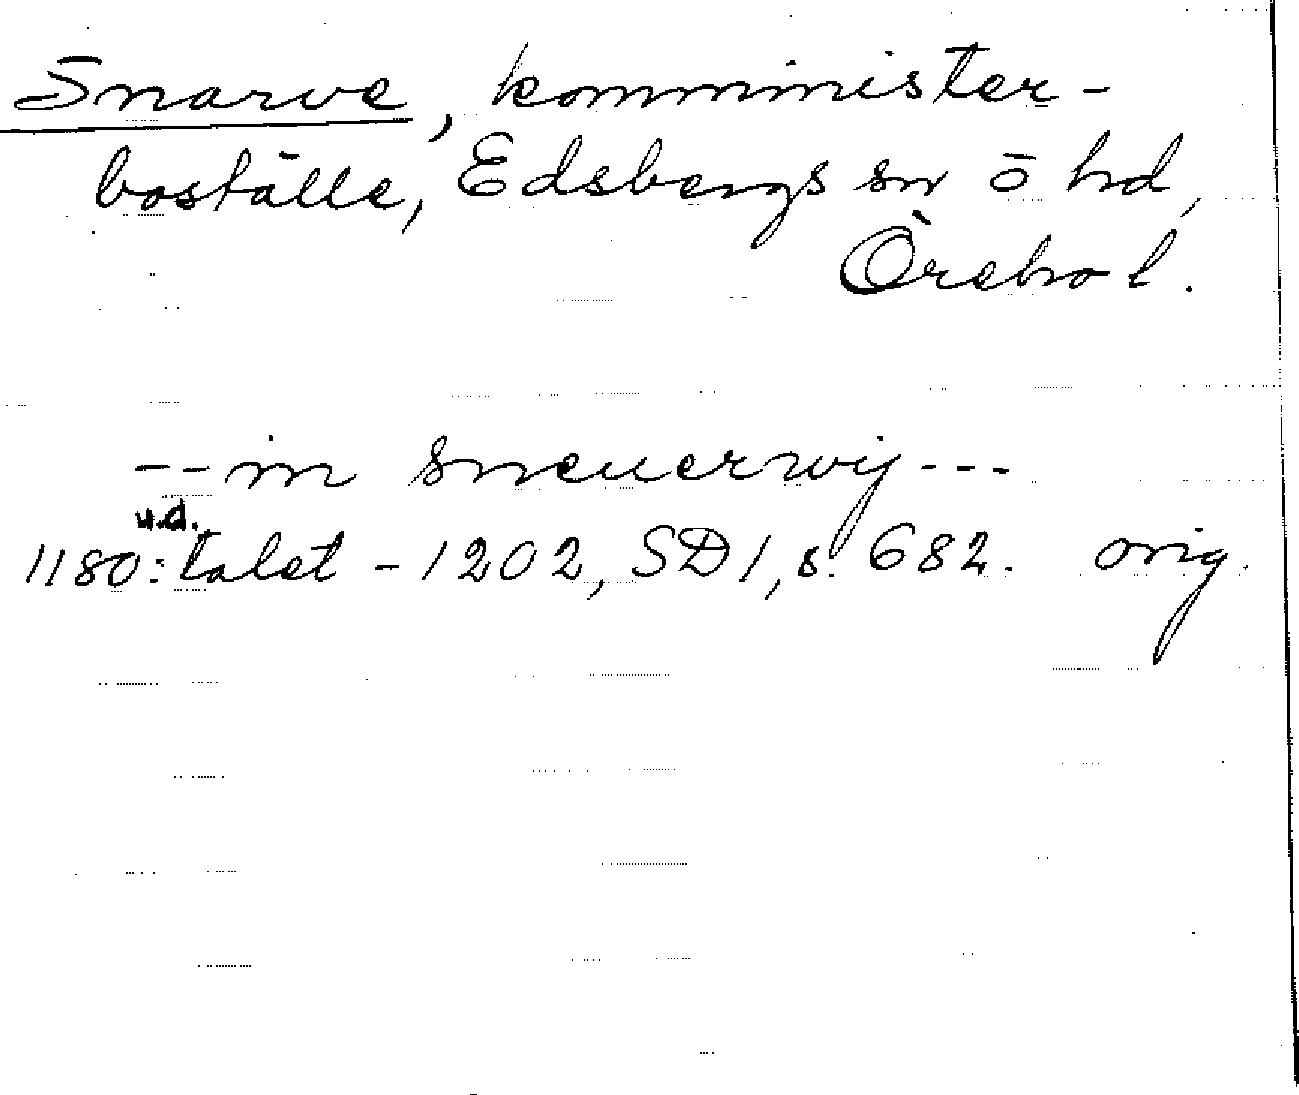 Snarve, komminister-
boställe, Edsbergs sn o hd,
Örebro l.
-- in sneuerwij ---
u.d.
1180: talet - 1202, SD 1, s. 682. orig.